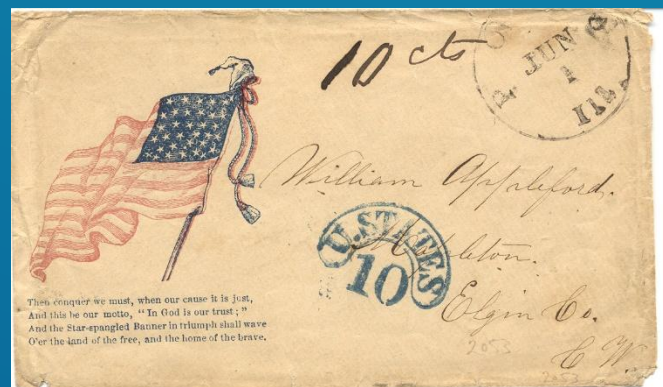 10 cts
JUN
1
Ill.
William Appleford.
U. STATES
10
Mapleton.
Elgin Co.
C W.
Then conquer we must, when our cause it is just,
And this be our motto, "In God is our trust;"
And the Star-spangled Banner in triumph shall wave
O'er the land of the free, and the home of the brave.
2053